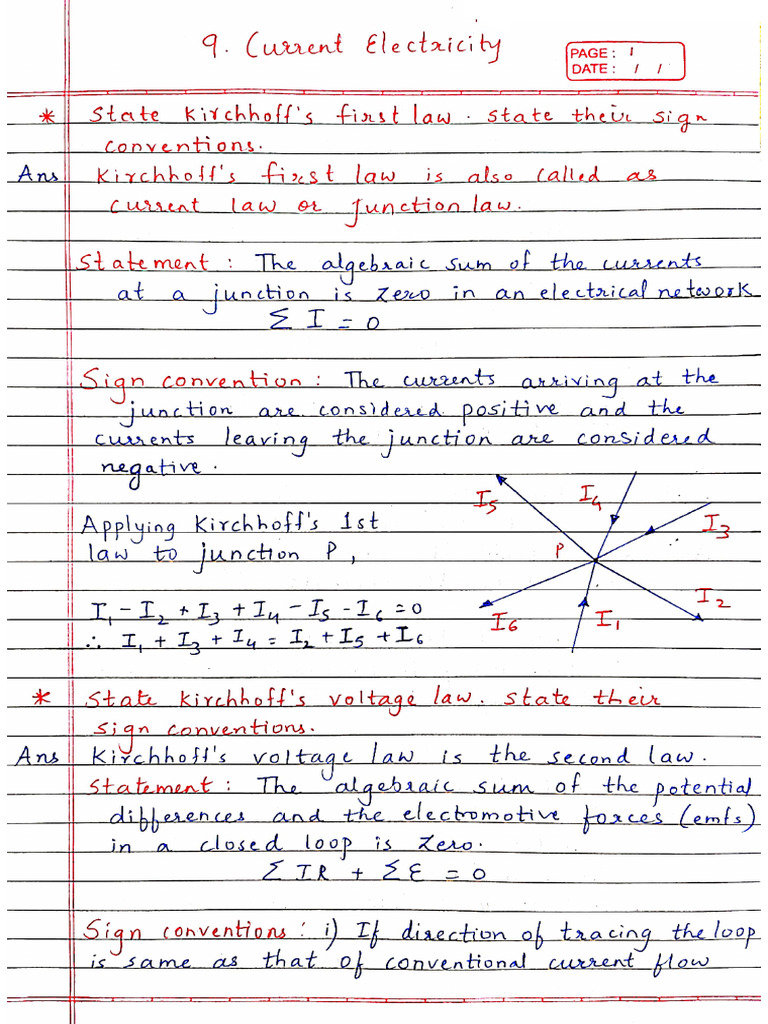 9. Current Electricity
PAGE: 1
DATE: / /
* State Kirchhoff's first law. state their sign
conventions.
Ans Kirchhoff's first law is also called as
current law or junction law.
Statement : The algebraic sum of the currents
at a junction is zero in an electrical network
Σ I = 0
Sign convention : The currents arriving at the
junction are considered positive and the
currents leaving the junction are considered
negative.
Applying Kirchhoff's 1st
law to junction P,
I₁ - I₂ + I₃ + I₄ - I₅ - I₆ = 0
∴ I₁ + I₃ + I₄ = I₂ + I₅ + I₆
I₅
I₄
I₃
P
I₂
I₆
I₁
* State Kirchhoff's voltage law. state their
sign conventions.
Ans Kirchhoff's voltage law is the second law.
Statement : The algebraic sum of the potential
differences and the electromotive forces (emfs)
in a closed loop is zero.
Σ IR + Σ ε = 0
Sign conventions : i) If direction of tracing the loop
is same as that of conventional current flow